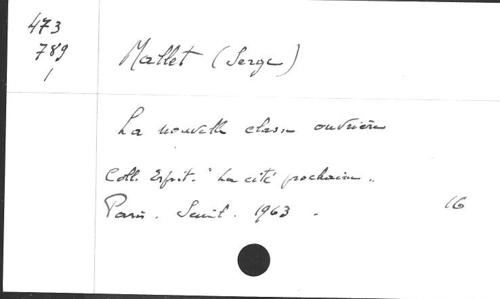 473
789
1
Mallet (Serge)
La nouvelle classe ouvrière
Coll. Esprit. "La cité prochaine".
Paris. Seuil. 1963. 16